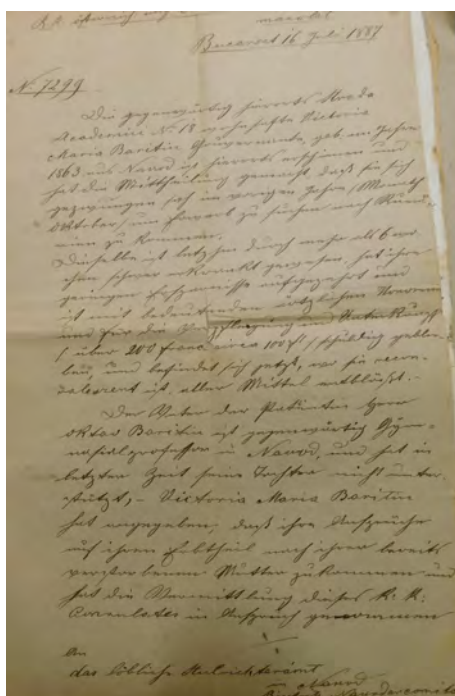 K. K. österreich-ung
Bucarest 16 Juli 1887
Nº. 7299
Die gegenwärtig hierorts Strada
Academiei Nº 18 wohnhafte Victoria
Maria Baritin Gouvernante, geb. im Jahre
1863, aus Naszod ist hierorts erschienen und
hat die Mittheilung gemacht, daß sie sich
gezwungen sah im vorigen Jahre /Monath
Oktober/ um Erwerb zu suchen nach Rumä-
nien zu kommen.
Dieselbe ist letzthin durch mehr als 6 Wo-
chen schwer erkrankt gewesen, hat ihre
geringen Ersparnisse aufgezehrt und
ist mit bedeutenden ärztlichen
und für die Verpflegung und Unterkunft
/ über 200 franc circa 100 f / schuldig geblie-
ben, und befindet sich jetzt, wo sie recon-
valescent ist, aller Mittel entblößt.-
Der Vater der Patientin Herr
Oktav Baritin ist gegenwärtig Gym-
nasialprofessor in Naszod, und hat in
letzten Zeit seine Tochter nicht unter-
stützt,- Victoria Maria Baritin
hat angegeben, daß ihre Ansprüche
auf ihren Erbtheil nach ihrer bereits
verstorbenen Mutter zukommen und
hat die Vermittlung dieses K. K.
Consulates in Anspruch genommen
An
das löbliche Stuhlrichteramt
in Naszod